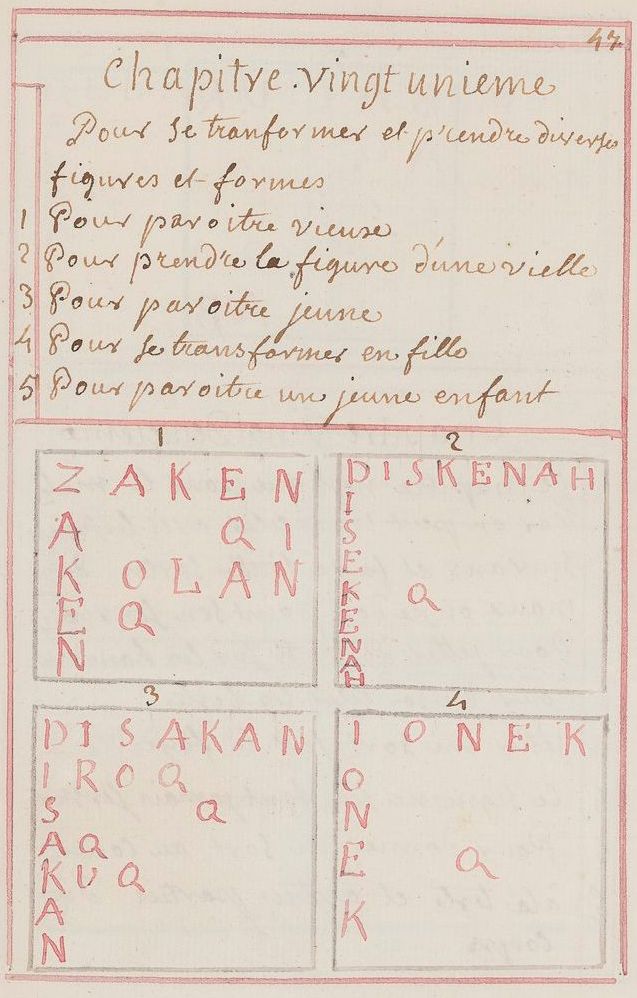 47
Chapitre . vingt unieme
Pour se tranformer et prendre diverse
figures et formes
1 Pour paroitre vieuse
2 Pour prendre la figure d'une vielle
3 Pour paroitre jeune
4 Pour se transformer en fille
5 Pour paroitre un jeune enfant
1
Z A K E N
A Q I
K O L A N
E Q
N
2
D I S K E N A H
I
S
E
K Q
E
N
A
H
3
D I S A K A N
I R O Q
S Q
A Q
K U Q
A
N
4
I O N E K
O
N
E Q
K